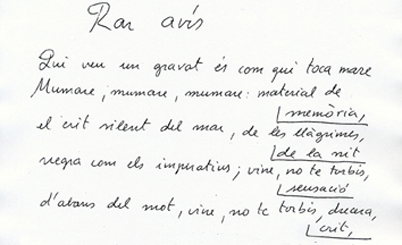 Rar avis
Qui veu un gravat és com qui toca mare
Mumare, mumare, mumare: material de
memòria,
el crit silent del mar, de les llàgrimes,
de la nit
negra com els imperatius; vine, no te torbis,
sensació
d'abans del mot, vine, no te torbis, ducura,
crit,